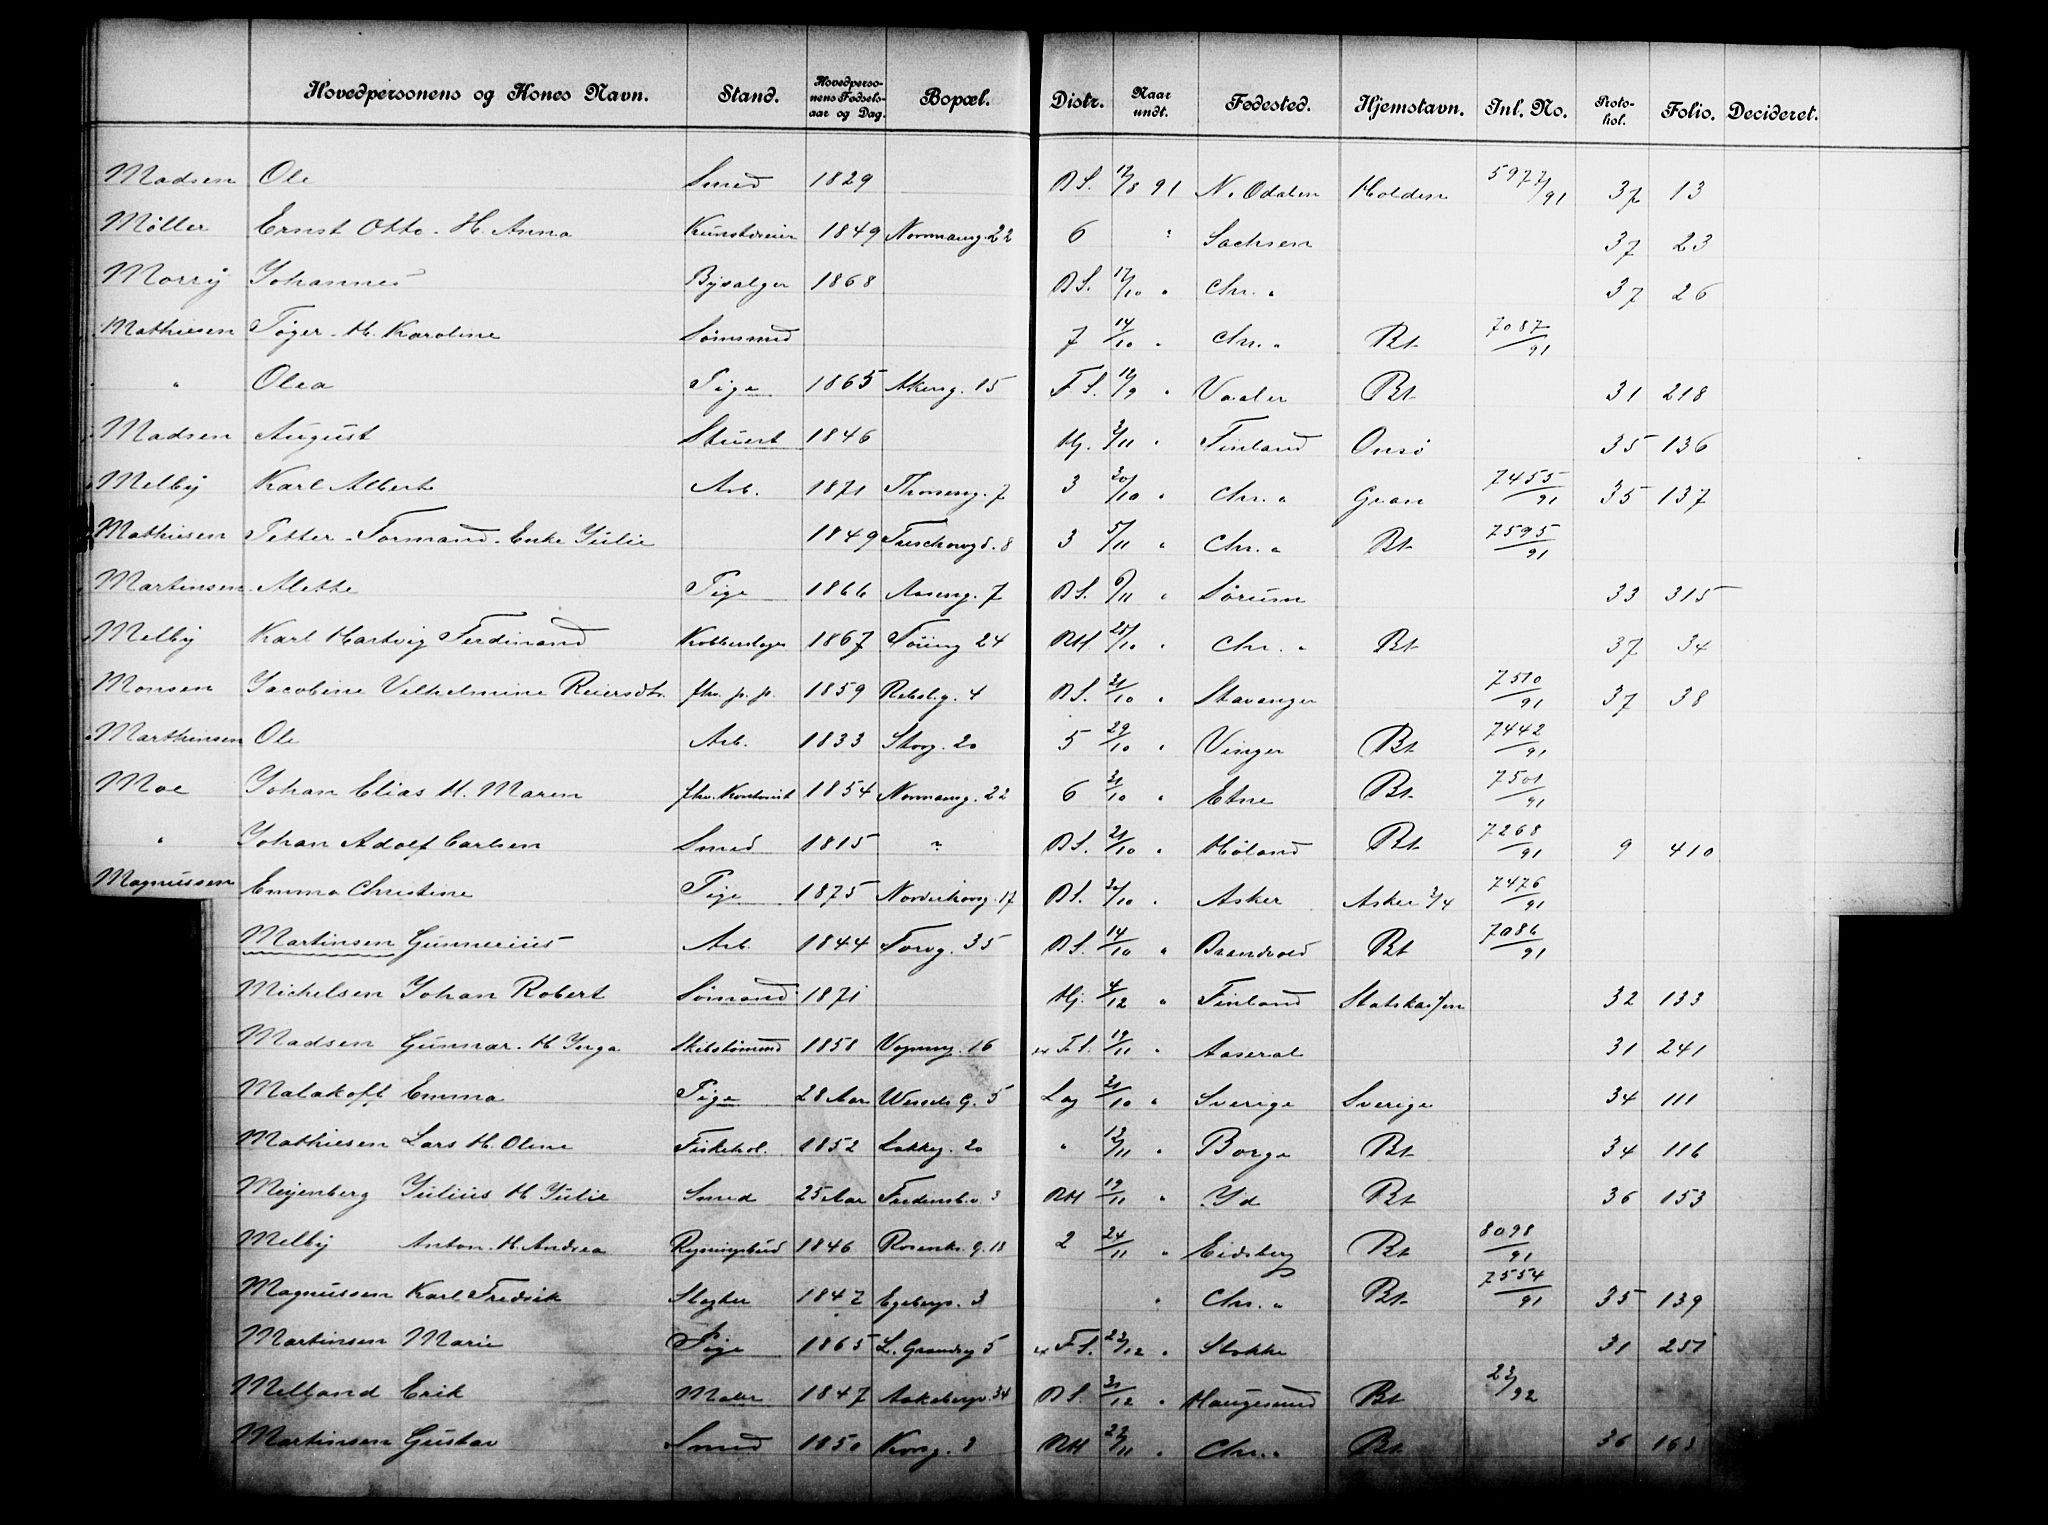 Hovedpersonens og Kones Navn. Stand. Hovedpersonens Fødselsaar og Dag. Bopæl. Distr. Naar undt. Fødested. Hjemstavn. Inl. No. Protokol. Folio. Decideret.
Madsen Ole Smed 1829 BS. 17/8 91 N. Odalen Holden 5977/91 37 13
Møller Ernst Otto. H. Anna Kunstdreier 1849 Normanng. 22 6 " Sachsen 37 23
Johannes Bysælger 1868 BS. 17/10 " Chr. " 37 26
Mathiesen Tøger. H. Karoline 7 14/10 " Chr. " Bt 7087/91
" Olea Pige 1865 Akersg. 15 F.S. /9 " Vaaler Bt 31 218
Madsen August Stuert 1846 Hj. 3/11 " Finland Onsø 35 136
Melby Karl Albert Arb. 1871 Thorseng. 7 3 20/10 " Chr. " Gran 7455/91 35 137
Mathiesen Petter. Formand. Enke Julie 1849 Treschowsg. 8 3 5/11 " Chr. " Bt 7595/91
Martinsen Alette Pige 1866 Aaseng. 7 BS. 6/11 " Sørum 33 315
Melby Karl Hartvig Ferdinand Kobberslager 1867 Tøieng 24 RH. /10 " Chr. " Bt 37 34
Monsen Jacobine Vilhelmine Reiersdtr. fhv. p. p. 1859 Rebslg. 4 BS. 31/10 " Stavanger 7510/91 37 38
Marthinsen Ole Arb. 1833 Storg. 20 5 29/10 " Vinger Bt 7442/91
Moe Johan Elias H. Maren fhv. Kontorist 1854 Normanng. 22 6 31/10 " Etne Bt 7501/91
" Johan Adolf Carlsen Smed 1815 " BS. 21/10 " Høland Bt 7268/91 9 410
Magnussen Emma Christine Pige 1875 Norderhovg. 17 BS. 30/10 " Asker Asker 3/4 7476/91
Martinsen Gunnerius Arb. 1844 Torvg. 35 BS. 14/10 " Brandvold Bt 7086/91
Michelsen Johan Robert Sømand 1871 Hj. 4/12 " Finland Statskassen 32 133
Madsen Gunnar. H Inga Skibstømmd 1858 Vognmg. 16 F.S. 19/11 " Aaseral 31 241
Malakoff Emma Pige 28 Aar Wessels G. 5 Lag 31/10 " Sverige Sverige 34 111
Mathiesen Lars H. Oline Fiskehol. 1852 Lakkeg. 20 " 12/11 " Borge Bt 34 116
Meyenberg Julius H Julie Smed 25 Aar Fredensb.v. 3 RH 19/11 " Id Bt 36 153
Melby Anton. H. Andrea Rydningsbud 1846 Rosenkr. g. 18 2 24/11 " Eidsberg Bt 8098/91
Magnussen Karl Fredrik Slagter 1842 Egebergs. 3 " Chr. " Bt 7554/91 35 139
Martinsen Marie Pige 1865 L. Grændsg 5 F.S. 22/12 " Stokke 31 251
Melland Erik Maler 1847 Aakebergv. 34 BS. 31/12 " Haugesund Bt 23/92
Martinsen Gustav Smed 1850 Korsg. 3 RH 23/11 " Chr. " Bt 36 163